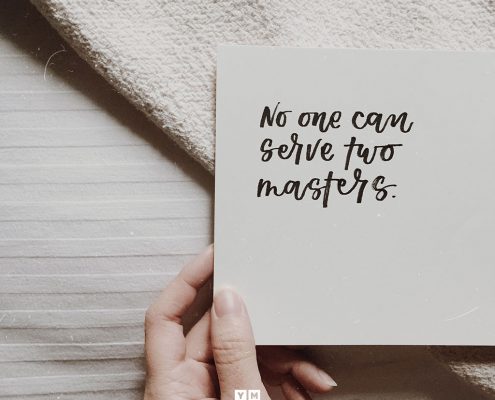 No one can
serve two
masters.
Y M